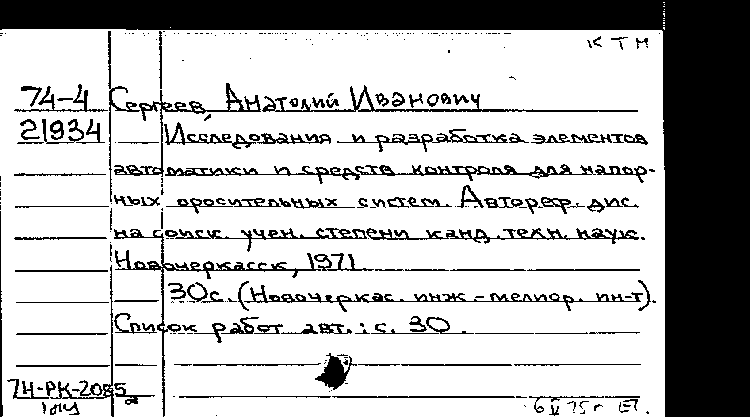 КТМ
74-4 Сергеев, Анатолий Иванович
21934 Исследования и разработка элементов
автоматики и средств контроля для напор-
ных оросительных систем. Автореф. дис.
на соиск. учен. степени канд. техн. наук.
Новочеркасск, 1971
30с. (Новочеркас. инж-мелиор. ин-т).
Список работ авт.: с. 30.
74-РК-2085
6 V 75г